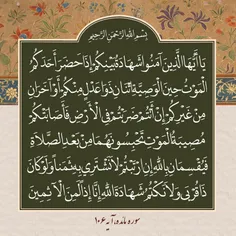 بِسْمِ اللَّهِ الرَّحْمَنِ الرَّحِيمِ
يَا أَيُّهَا الَّذِينَ آمَنُوا شَهَادَةُ بَيْنِكُمْ إِذَا حَضَرَ أَحَدَكُمُ
الْمَوْتُ حِينَ الْوَصِيَّةِ اثْنَانِ ذَوَا عَدْلٍ مِنْكُمْ أَوْ آخَرَانِ
مِنْ غَيْرِكُمْ إِنْ أَنْتُمْ ضَرَبْتُمْ فِي الْأَرْضِ فَأَصَابَتْكُمْ
مُصِيبَةُ الْمَوْتِ تَحْبِسُونَهُمَا مِنْ بَعْدِ الصَّلَاةِ
فَيُقْسِمَانِ بِاللَّهِ إِنِ ارْتَبْتُمْ لَا نَشْتَرِي بِهِ ثَمَنًا وَلَوْ كَانَ
ذَا قُرْبَى وَلَا نَكْتُمُ شَهَادَةَ اللَّهِ إِنَّا إِذًا لَمِنَ الْآثِمِينَ
سوره مائده، آیه ۱۰۶